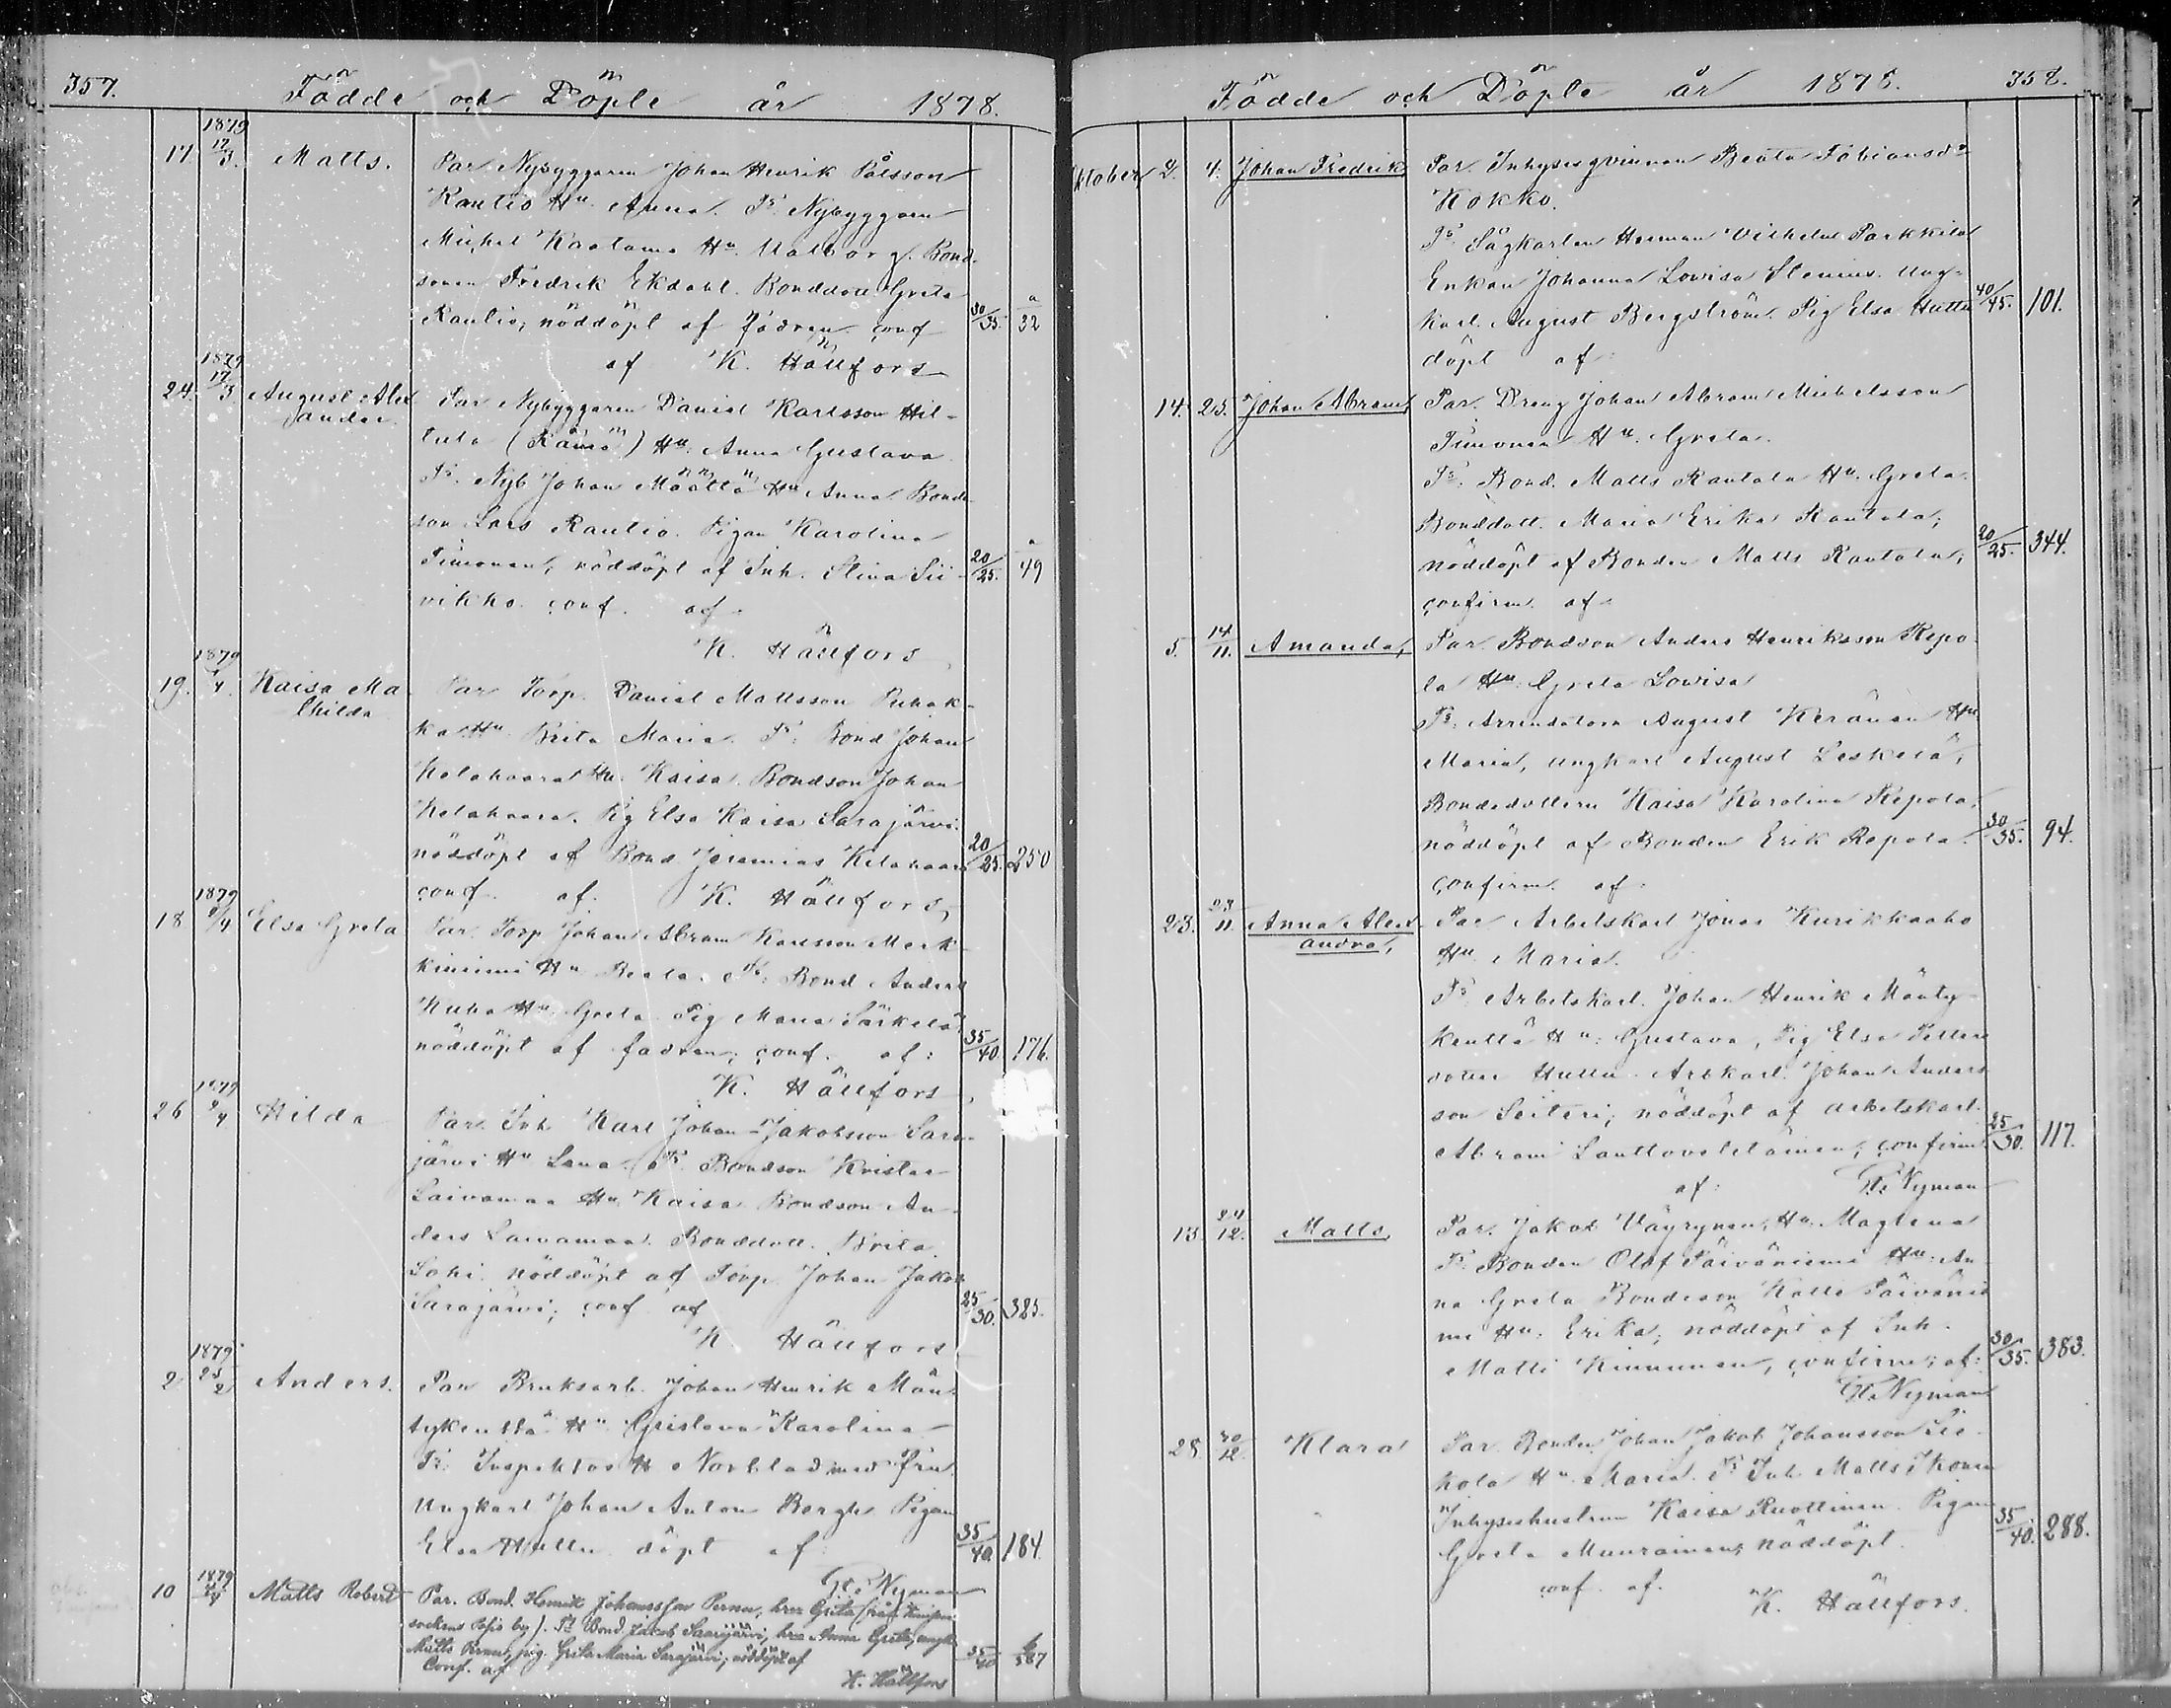 357. Födde och Döpte år 1878.
1879
17 17/3. Matts. Par Nybyggaren Johan Henrik Pålsson
Rautio Hu. Anna. Ts. Nybyggaren
Michel Hu. Valborg. Bond-
sonen Fredrik Ekdahl. Bonddott. Greta
Rautio, nöddöpt af fadren conf 30/35. a/32
af K. Hällfors
1879
24 17/3 August Alex
ander. Par Nybyggaren Daniel Karlsson Hil-
tula (Rämö) Hu. Anna Gustava
Ts. Nyb Johan Määttä Hu Anna Bond-
son Lars Rautio. Pigan Karolina
Timonen, nöddöpt af Inh. Stina Sii- 20/25. a/49
vikko. conf. af
K. Hällfors
1879
19. /4. Kaisa Ma
thilda Par Torp. Daniel Mattsson Puhak-
ka Hu. Brita Maria. Ts. Bond Johan
Kelahaara Hu. Kaisa. Bondson Johan
Kelahaara. Pig Elsa Kaisa Sarajärvi.
nöddöpt af Bond Jeremias Kelahaara 20/25. 250
conf. af. K. Hällfors,
1879
18 /4 Elsa Greta Par. Torp Johan Abram Karlsson Mark-
kiniemi Hu Beata. Ts. Bond Anders
Kuha Hu. Greta. Pig Maria Särkelä
nöddöpt af fadren, conf. af: 35/40. 176.
K. Hällfors,
1879
26 9/4 Hilda Par. Inh. Karl Johan Jakobsson Sara-
järvi Hu Lena. Ts. Bondson Krister
Laivamaa Hu. Kaisa Bondson An-
ders Laivamaa. Bonddott. Brita
Lohi. nöddöpt af Torp. Johan Jakob
Sarajärvi; conf af 25/30. 385.
K. Hällfors
1879
2 25/2 Anders. Par Bruksarb. Johan Henrik Män-
tykenttä Hu Gustava Karolina
Ts. Inspektor H Norblad med fru
Ungkarl Johan Anton Bergh. Pigan
Elsa Huttu döpt af: 35/40 184.
G. Nyman
1879
10 /4 Matts Robert Par. Bond. Henrik Johansson Pernu, hru Greta (från Kuusamo
sockens Posio by). Ts Bond Jakob Saarijärvi, hru Anna Greta, ungk.
Matts Pernu, pig. Greta Maria Sarajärvi, nöddöpt af 35/40 587
Conf. af K. Hällfors
Födde och Döpte år 1878. 358.
Oktober 2. 4. Johan Fredrik Par. Inhysesqvinnan Beata Fabiansdr
Kokko.
Ts. Sågkarlen Herman Vilhelm Parkkila
Enkan Johanna Lovisa Stenius. Ung-
karl. August Bergström. Pig Elsa Huttu 40/45. 101.
döpt af:
14. 25. Johan Abram, Par. Dreng Johan Abram Michelsson
Timonen Hu. Greta.
Ts. Bond. Matts Rantala Hu. Greta.
Bonddott. Maria Erika Rantala;
nöddöpt af Bonden Matts Rantala, 20/25. 344.
confirm. af
5. 14/11. Amanda, Par. Bondson Anders Henriksson Repo-
la Hu. Greta Lovisa
Ts. Arrendatorn August Keränen Hu
Maria, ungkarl August Leskelä,
Bondedottern Kaisa Karolina Repola,
nöddöpt af Bonden Erik Repola. 30/35. 94.
confirm. af:
23. 23/11. Anna Alex-
andra, Par Arbetskarl Jonas Kurikkaaho
Hu. Maria.
Ts. Arbetskarl. Johan Henrik Mänty-
kenttä Hu: Gustava, Pig Elsa Petters
dotter Huttu. Arbkarl. Johan Anders
son Seiteri; nöddöpt af arbetskarl.
Abram, confirm 25/30. 117.
af: G. Nyman
13. 24/12. Matts, Par. Jakob Väyrynen, Hu. Magtena
Ts. Bonden Olof Päiväniemi Hu: An-
na Greta Bondeson Kalle Päivänie
mi Hu. Erika; nöddöpt af Inh.
Matti Kinnunen, confirm; af: 30/35. 383.
G. Nyman
28. 30/12 Klara Par. Bonden Johan Jakob Johansson Lii-
kola Hu. Maria. Ts. Inh. Matts Ikonen
Inhyseshustrun Kaisa Ruottinen. Pigan
Greta Muurainen, nöddöpt. 35/40. 288.
conf. af. K. Hällfors.